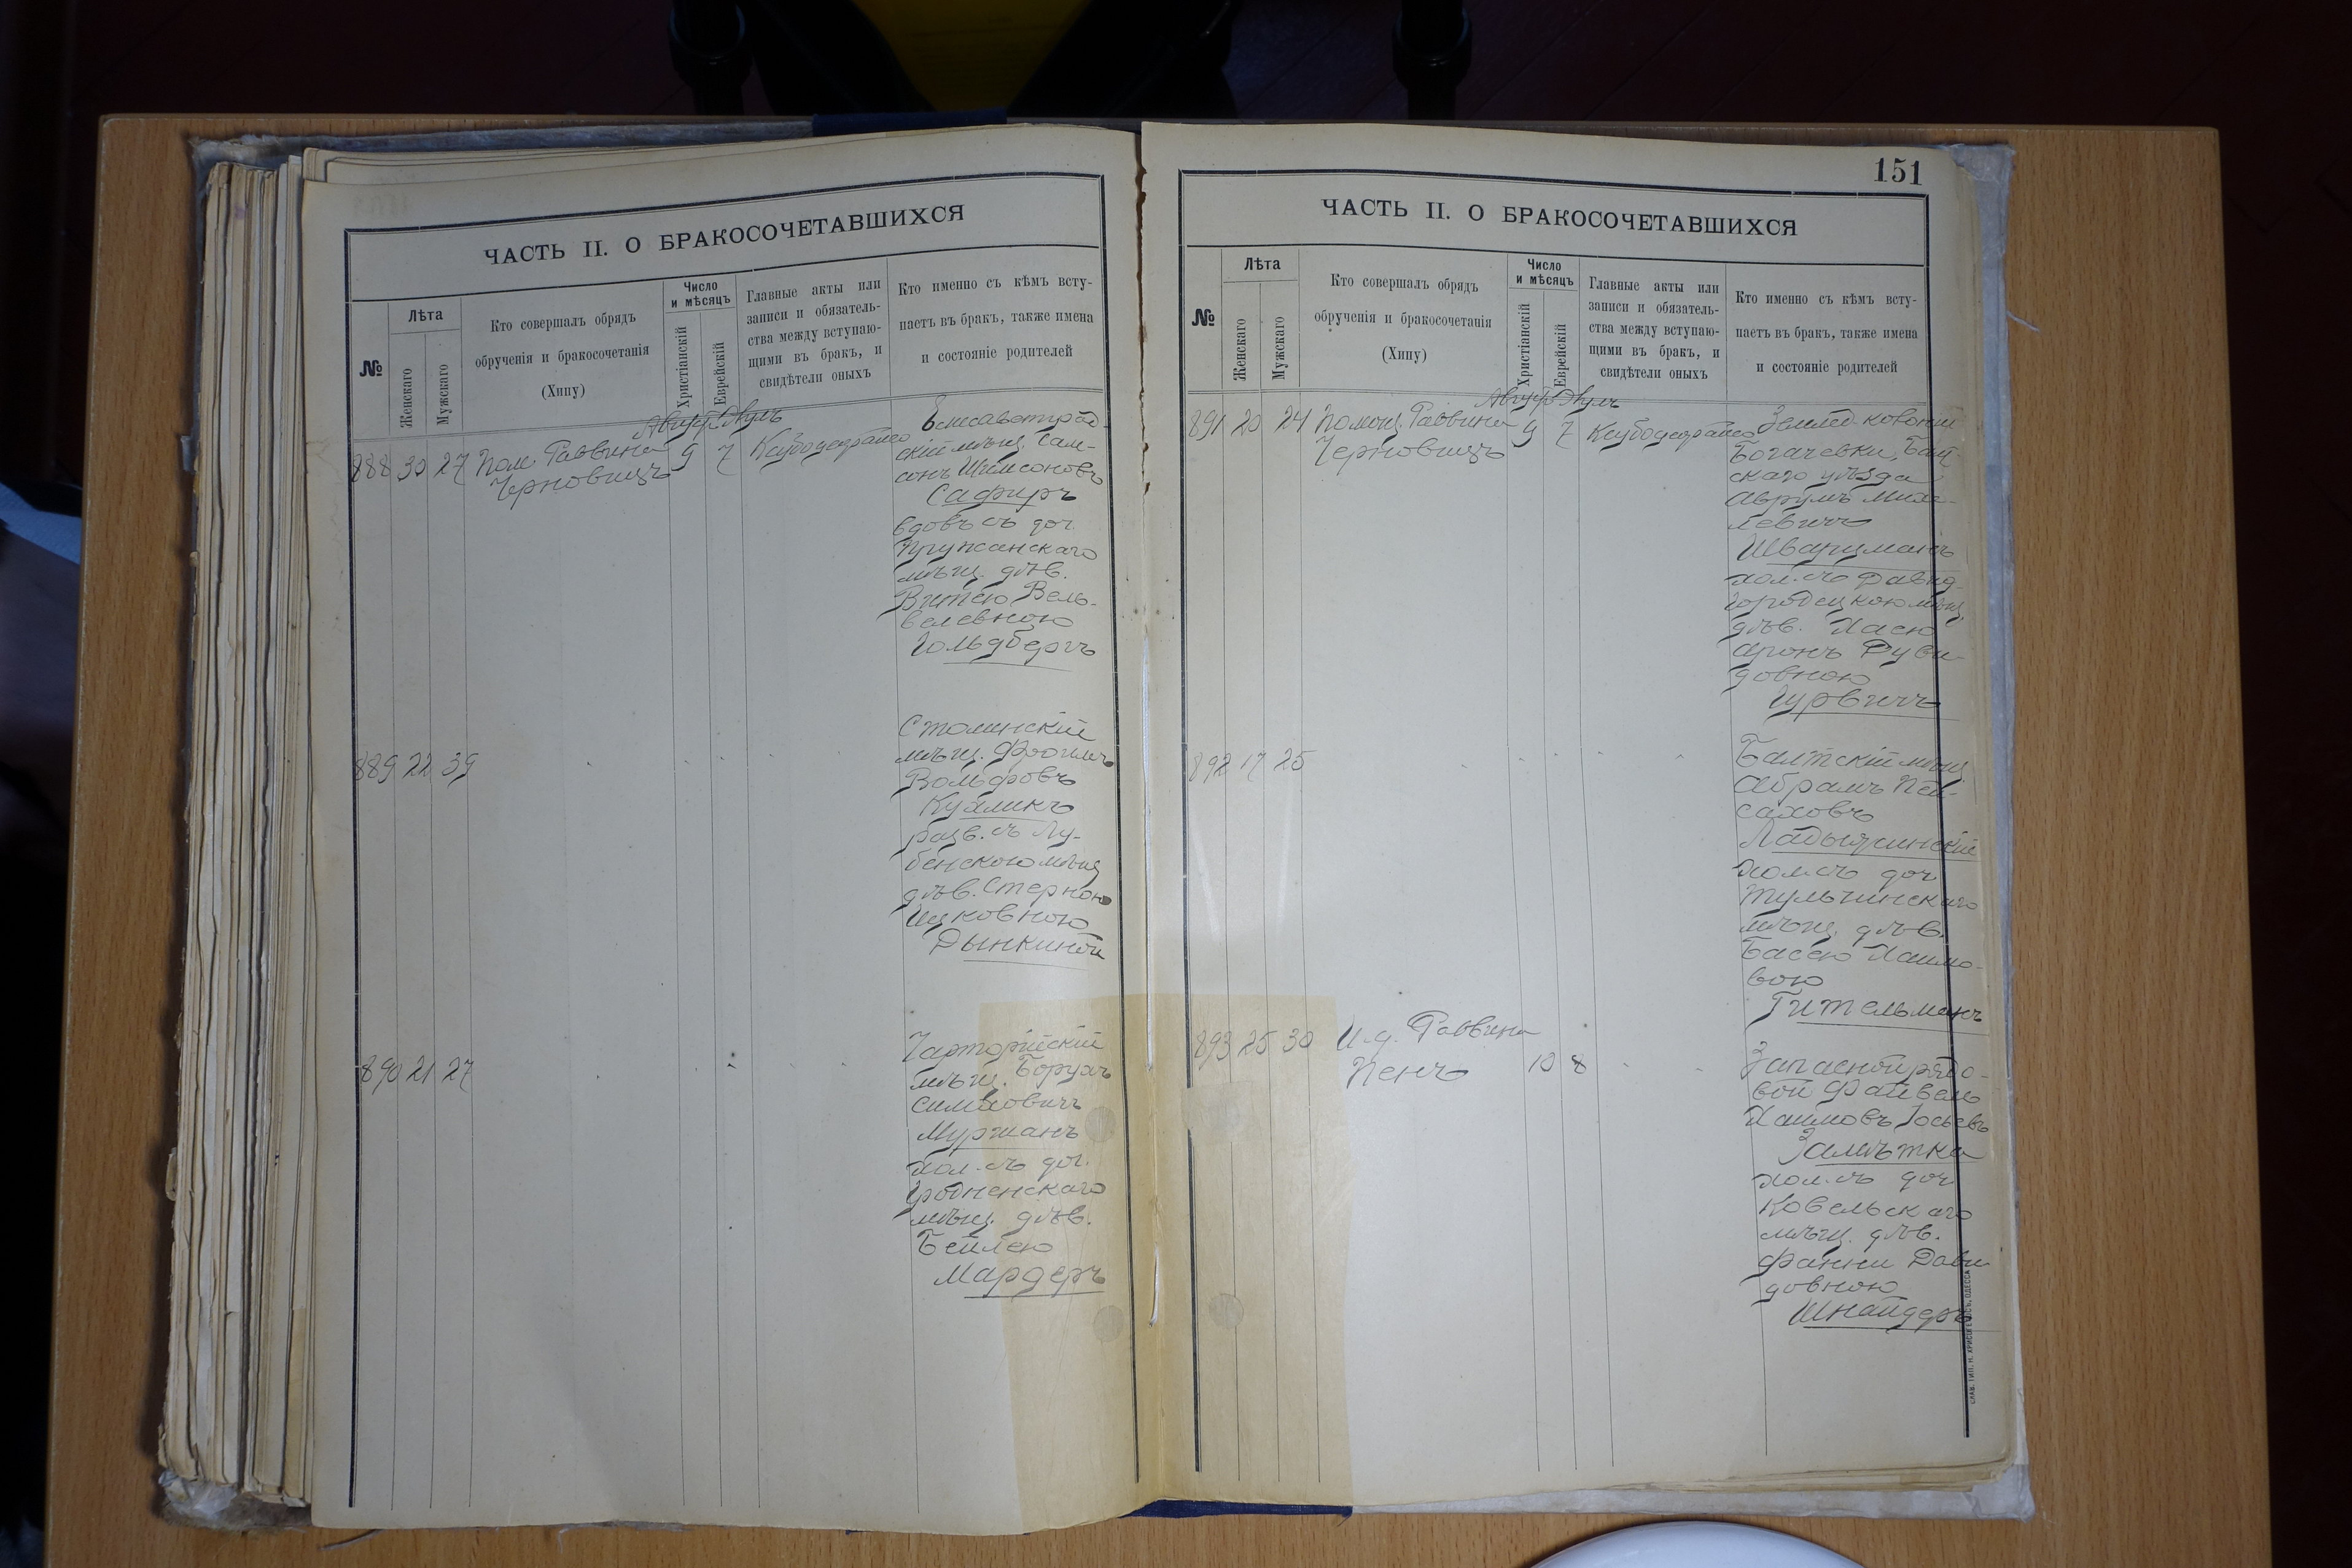 ЧАСТЬ II. О БРАКОСОЧЕТАВШИХСЯ
№
Лѣта
Женскаго
Мужскаго
Кто совершалъ обрядъ
обрученія и бракосочетанія
(Хипу)
Число
и мѣсяцъ
Христіанскій
Еврейскій
Главные акты или
записи и обязатель-
ства между вступаю-
щими въ бракъ, и
свидѣтели оныхъ
Кто именно съ кѣмъ всту-
паетъ въ бракъ, также имена
и состояніе родителей
888 30 27 Пом. Раввина
Черновицъ
9 7
Елисаветград-
скій мѣщ. Сам-
сонъ Шимсоновъ
Сафиръ
вдовъ съ доч.
Пружанскаго
мѣщ. дѣв.
Витею Вель-
велевною
Гольдбергъ
889 22 39
Столинскій
мѣщ. Фроимъ
Вольфовъ
Куликъ
разв. съ Лу-
бенскою мѣщ
дѣв. Стерною
Ицковною
Дынкиной
890 21 27
Чарторійскій
мѣщ. Борухъ
Симховичъ
Мурманъ
хол. съ доч.
Гродненскаго
мѣщ. дѣв.
Бейлею
Мардеръ
151
ЧАСТЬ II. О БРАКОСОЧЕТАВШИХСЯ
№
Лѣта
Женскаго
Мужскаго
Кто совершалъ обрядъ
обрученія и бракосочетанія
(Хипу)
Число
и мѣсяцъ
Христіанскій
Еврейскій
Главные акты или
записи и обязатель-
ства между вступаю-
щими въ бракъ, и
свидѣтели оныхъ
Кто именно съ кѣмъ всту-
паетъ въ бракъ, также имена
и состояніе родителей
891 20 24 Помощ. Раввина
Черновицъ
9 7
Землед. колоніи
Богачевки, Балт-
скаго уѣзда
Аврумъ Михе-
левичъ
Шварцманъ
хол. съ Давид-
городецкою мѣщ
дѣв. Хасею
Аронъ Руви-
довною
Гурвичъ
892 17 25
Балтскій мѣщ.
Абрамъ Пей-
саховъ
Ладыжинскій
хол. съ доч
Тульчинскаго
мѣщ. дѣв.
Басею Хаимо-
вою
Гительманъ
893 25 30 И. д. Раввина
Пенъ
10 8
Запасной рядо-
вой Файвель
Хаимовъ Іосьевъ
Замѣтка
хол. съ доч
Ковельскаго
мѣщ. дѣв.
Фанни Дави-
довною
Шнайдеръ